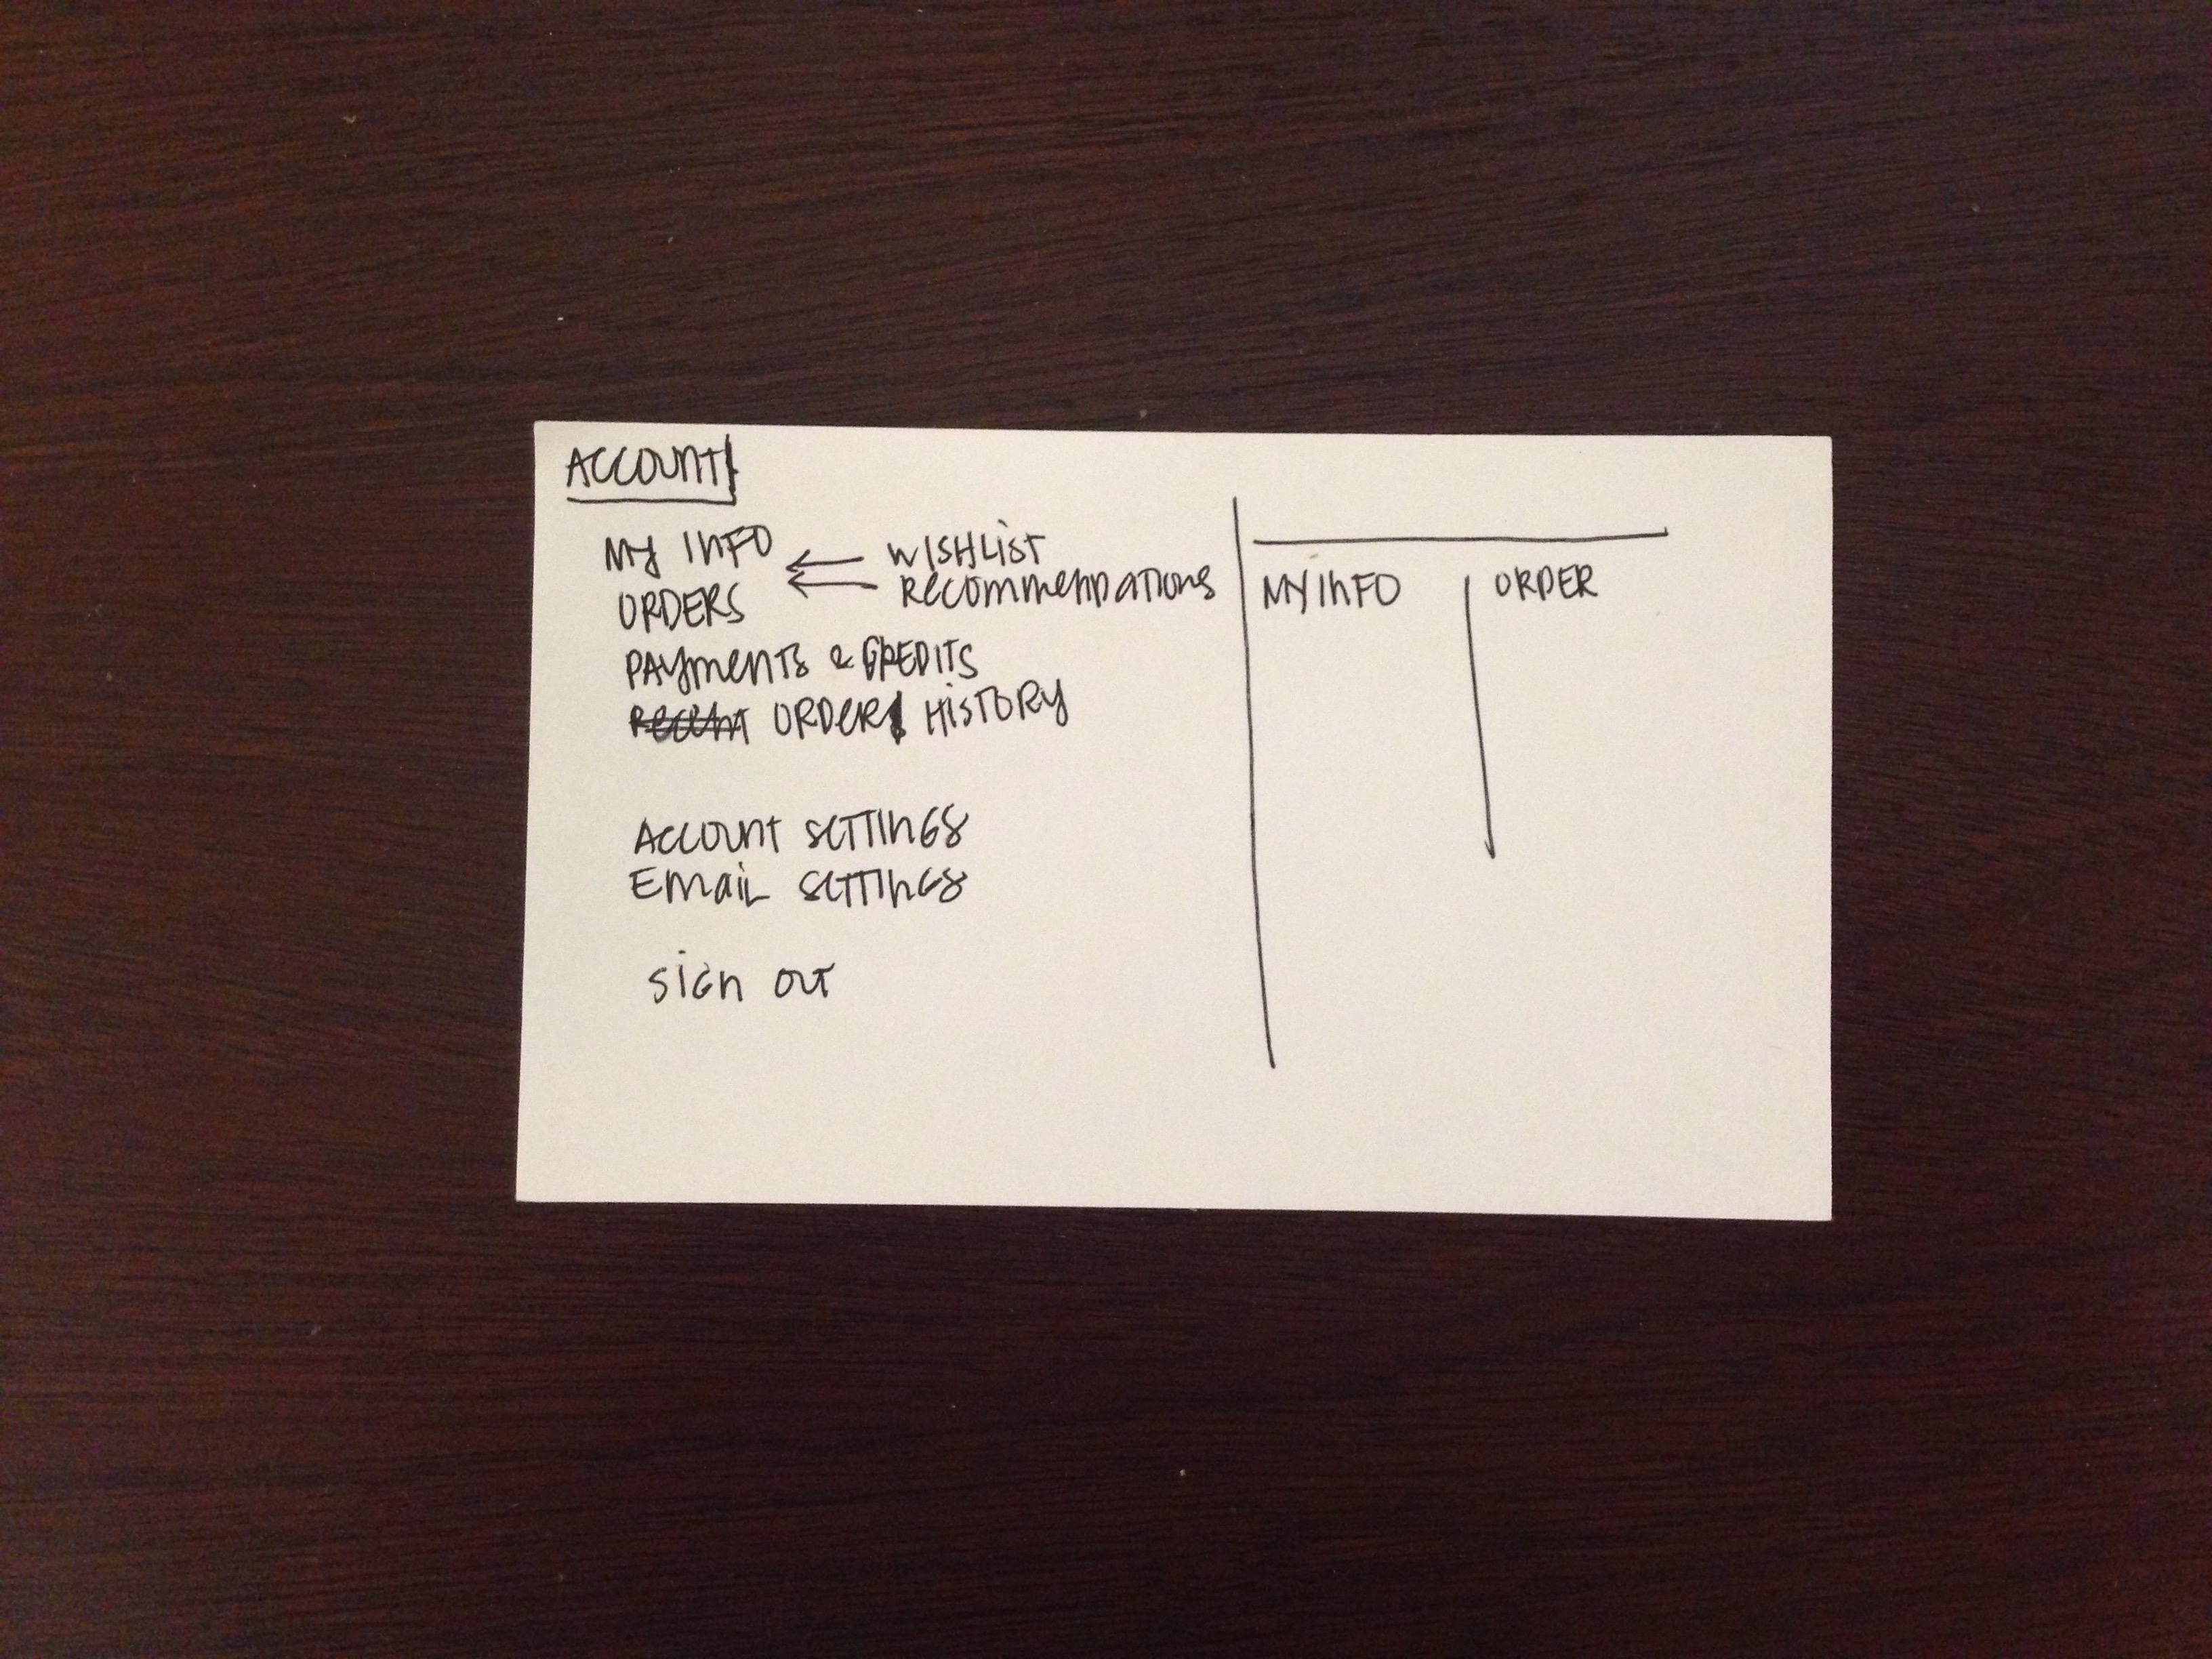 ACCOUNT
MY INFO
ORDERS
← WISHLIST
← RECOMMENDATIONS
PAYMENTS & CREDITS
RECENT ORDER HISTORY
ACCOUNT SETTINGS
EMAIL SETTINGS
SIGN OUT
MY INFO
ORDER